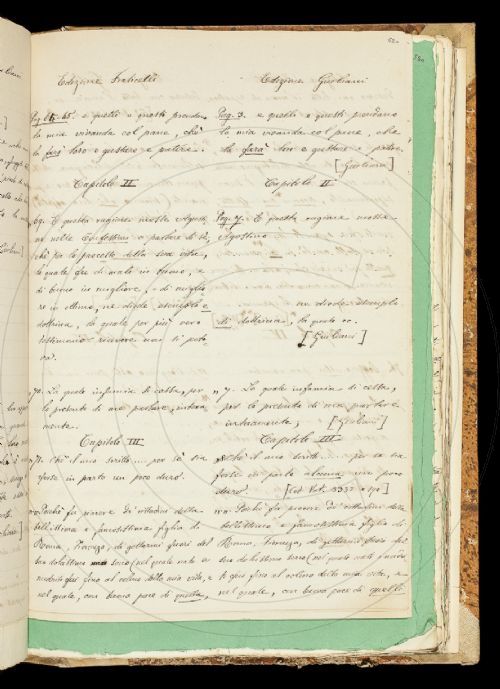 52.
Edizione Fraticelli
Pag. 65. 68. e questi e questi prendano
la mia vivanda col pane, chè
la farà loro e gustare e patire.
Capitolo II
69. E questa ragione mosse Agosti
no nelle Confessioni a parlare di sè,
chè per lo processo della sua vita,
lo quale fu di malo in buono, e
di buono in migliore, e di miglio
re in ottimo, ne diede esemplo e
dottrina, la quale per più vero
testimonio ricevere non si pote
va.
70. La quale infamia di costa, per
lo pretesto di me parlare, intera
mente.
Capitolo III
71. Chè il mio scritto.... per sè sia
forse in parte un poco duro.
Poichè fu piacere de' cittadini della
bellissima e famosissima figlia di
Roma, Firenze, di gettarmi fuori del
suo dolcissimo seno (nel quale nato e
nudrito fui fino al colmo della mia vita, e
nel quale, con buona pace di questa,
Edizione Giuliani
Pag. 3. e questi e questi prendano
la mia vivanda col pane, che
la farà loro e gustare e patire.
[Giuliani]
Capitolo II
Pag. 7. E questa ragione mosse
Agostino
ne diede esemplo
di dottrina, la quale ec.
[Giuliani]
" 7. La quale infamia di costa,
per lo pretesto di me parlare
interamente, [Giuliani]
Capitolo III
Chè il mio scritto.... per sè sia
forse in parte alcuna un poco
duro. [Cod. Vat. 3332 e 190]
Poichè fu piacere de' cittadini della
bellissima e famosissima figlia di
Roma, Firenze, di gettarmi fuori del
suo dolcissimo seno (nel quale nato e nudri
to fui fino al colmo della mia vita, e
nel quale, con buona pace di quelli